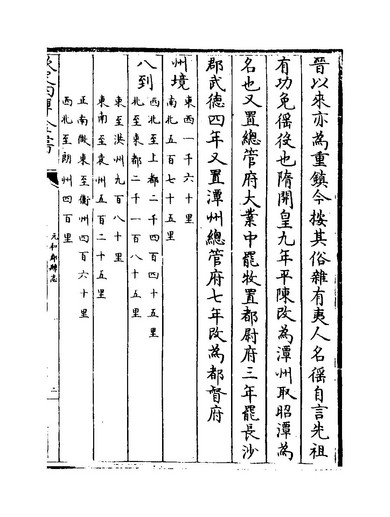 晉以來亦為重鎮今按其俗雜有夷人名猺自言先祖
有功免徭役也隋開皇九年平陳改為潭州取昭潭為
名也又置總管府大業中罷牧置都尉府三年罷長沙
郡武德四年又置潭州總管府七年改為都督府
州境
東西一千六十里
南北五百七十五里
八到
西北至上都二千四百四十五里
北至東都二千一百八十五里
東至洪州九百八十里
東南至袁州五百二十五里
正南微東至衡州四百六十里
西北至朗州四百里
欽定四庫全書
元和郡縣志
二